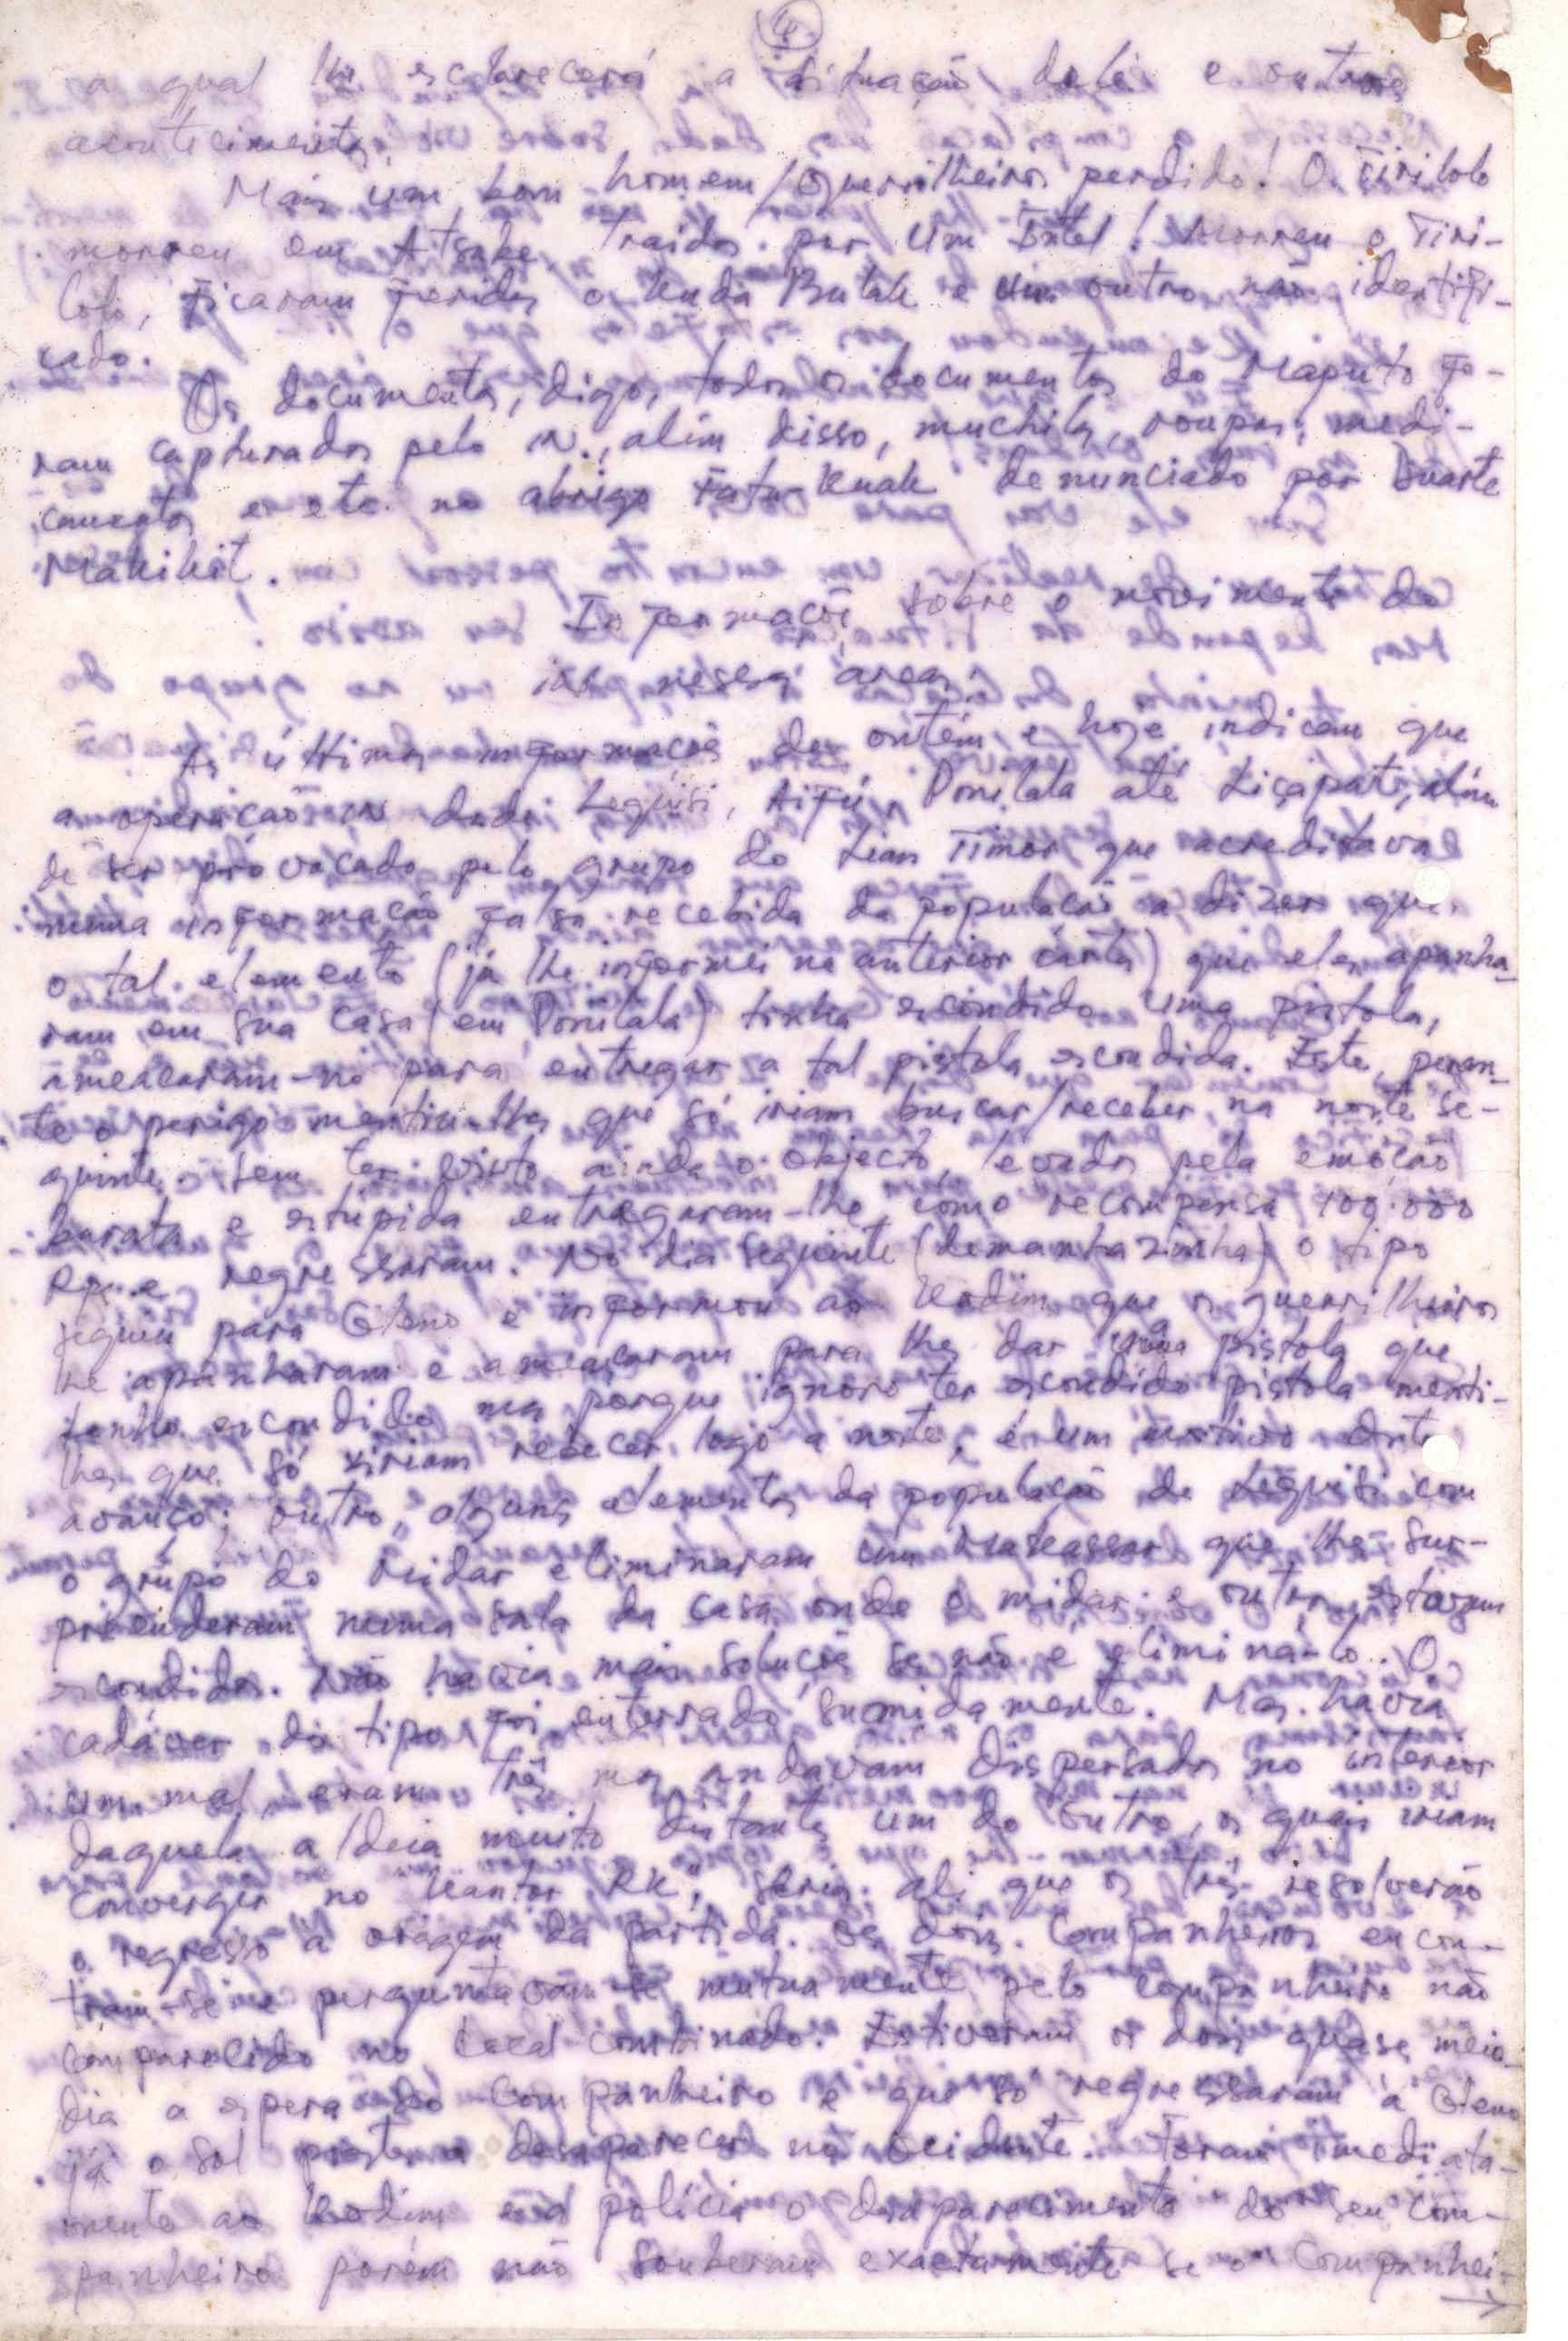 4
a qual lhe esclarecerá a situação dele e outros
acontecimentos.
Mais um bom homem/Guerrilheiro perdido! O Tirilolo
morreu em Atsabe traido por um Intel! Morreu o Tiri-
lolo, ficaram feridos o Kuda Butak e um outro não identifi-
cado.
Os documentos, digo, todos os documentos do Maputo fo-
ram capturados pelo in., além disso, muchilas, roupas, medi-
camentos etc no abrigo Fatu-Kuak denunciado por Duarte
Makikit.
Informações sobre o movimento do
in nessa área:
As últimas informações de ontém e hoje indicam que
a operação in desde Leguisi, Aifú, Ponilala até Liçapat, além
de ser provocado pelo grupo do Lean Timor que acreditava
numa informação falsa recebida da população a dizer que
o tal elemento (já lhe informei na anterior carta) que eles apanha-
ram em sua casa (em Ponilala) tinha escondido uma pistola,
ameaçaram-no para entregar a tal pistola escondida. Este, peran-
te o perigo mentiu-lhes que só iriam buscar/receber na noite se-
guinte. Sem ter visto ainda o objecto, levados pela emoção
barata e stúpida entregaram-lhe como recompensa 100.000
Rp. e regressaram. No dia seguinte (demanhazinha) o tipo
seguiu para Gleno e informou ao Kodim que os guerrilheiros
lhe apanharam e ameaçaram para lhes dar uma pistola que
tenho escondido mas porque ignoro ter escondido pistola menti-
lhes que só viriam receber logo a noite, é um motivo deste
avanço; outro, alguns elementos da população de Leguisi com
o grupo do Midar eliminaram um Makassar que lhes sur-
preenderam numa sala da casa onde o midar e outros estavam
escondidos. Não havia mais solução se não é eliminá-lo. O
cadáver do tipo foi enterrado sumidamente. Mas havia
um mal, eram três mas andavam dispersados no interior
daquela aldeia muito distantes um do outro, os quais iriam
convergir no "Kantor RK", seria ali que os três resolverão
o regresso à origem da partida. Os dois companheiros encon-
tram-se e perguntavam-se mutuamente pelo companheiro não
comparecido no local combinado. Estiveram os dois quase meio-
dia a espera do companheiro e que só regressaram à Gleno
já o sol prestes a desaparecer no ocidente. Foram imediata-
mente ao Kodim e à polícia o desaparecimento do seu com-
panheiro porém não souberam exactamente se o companhei-
→